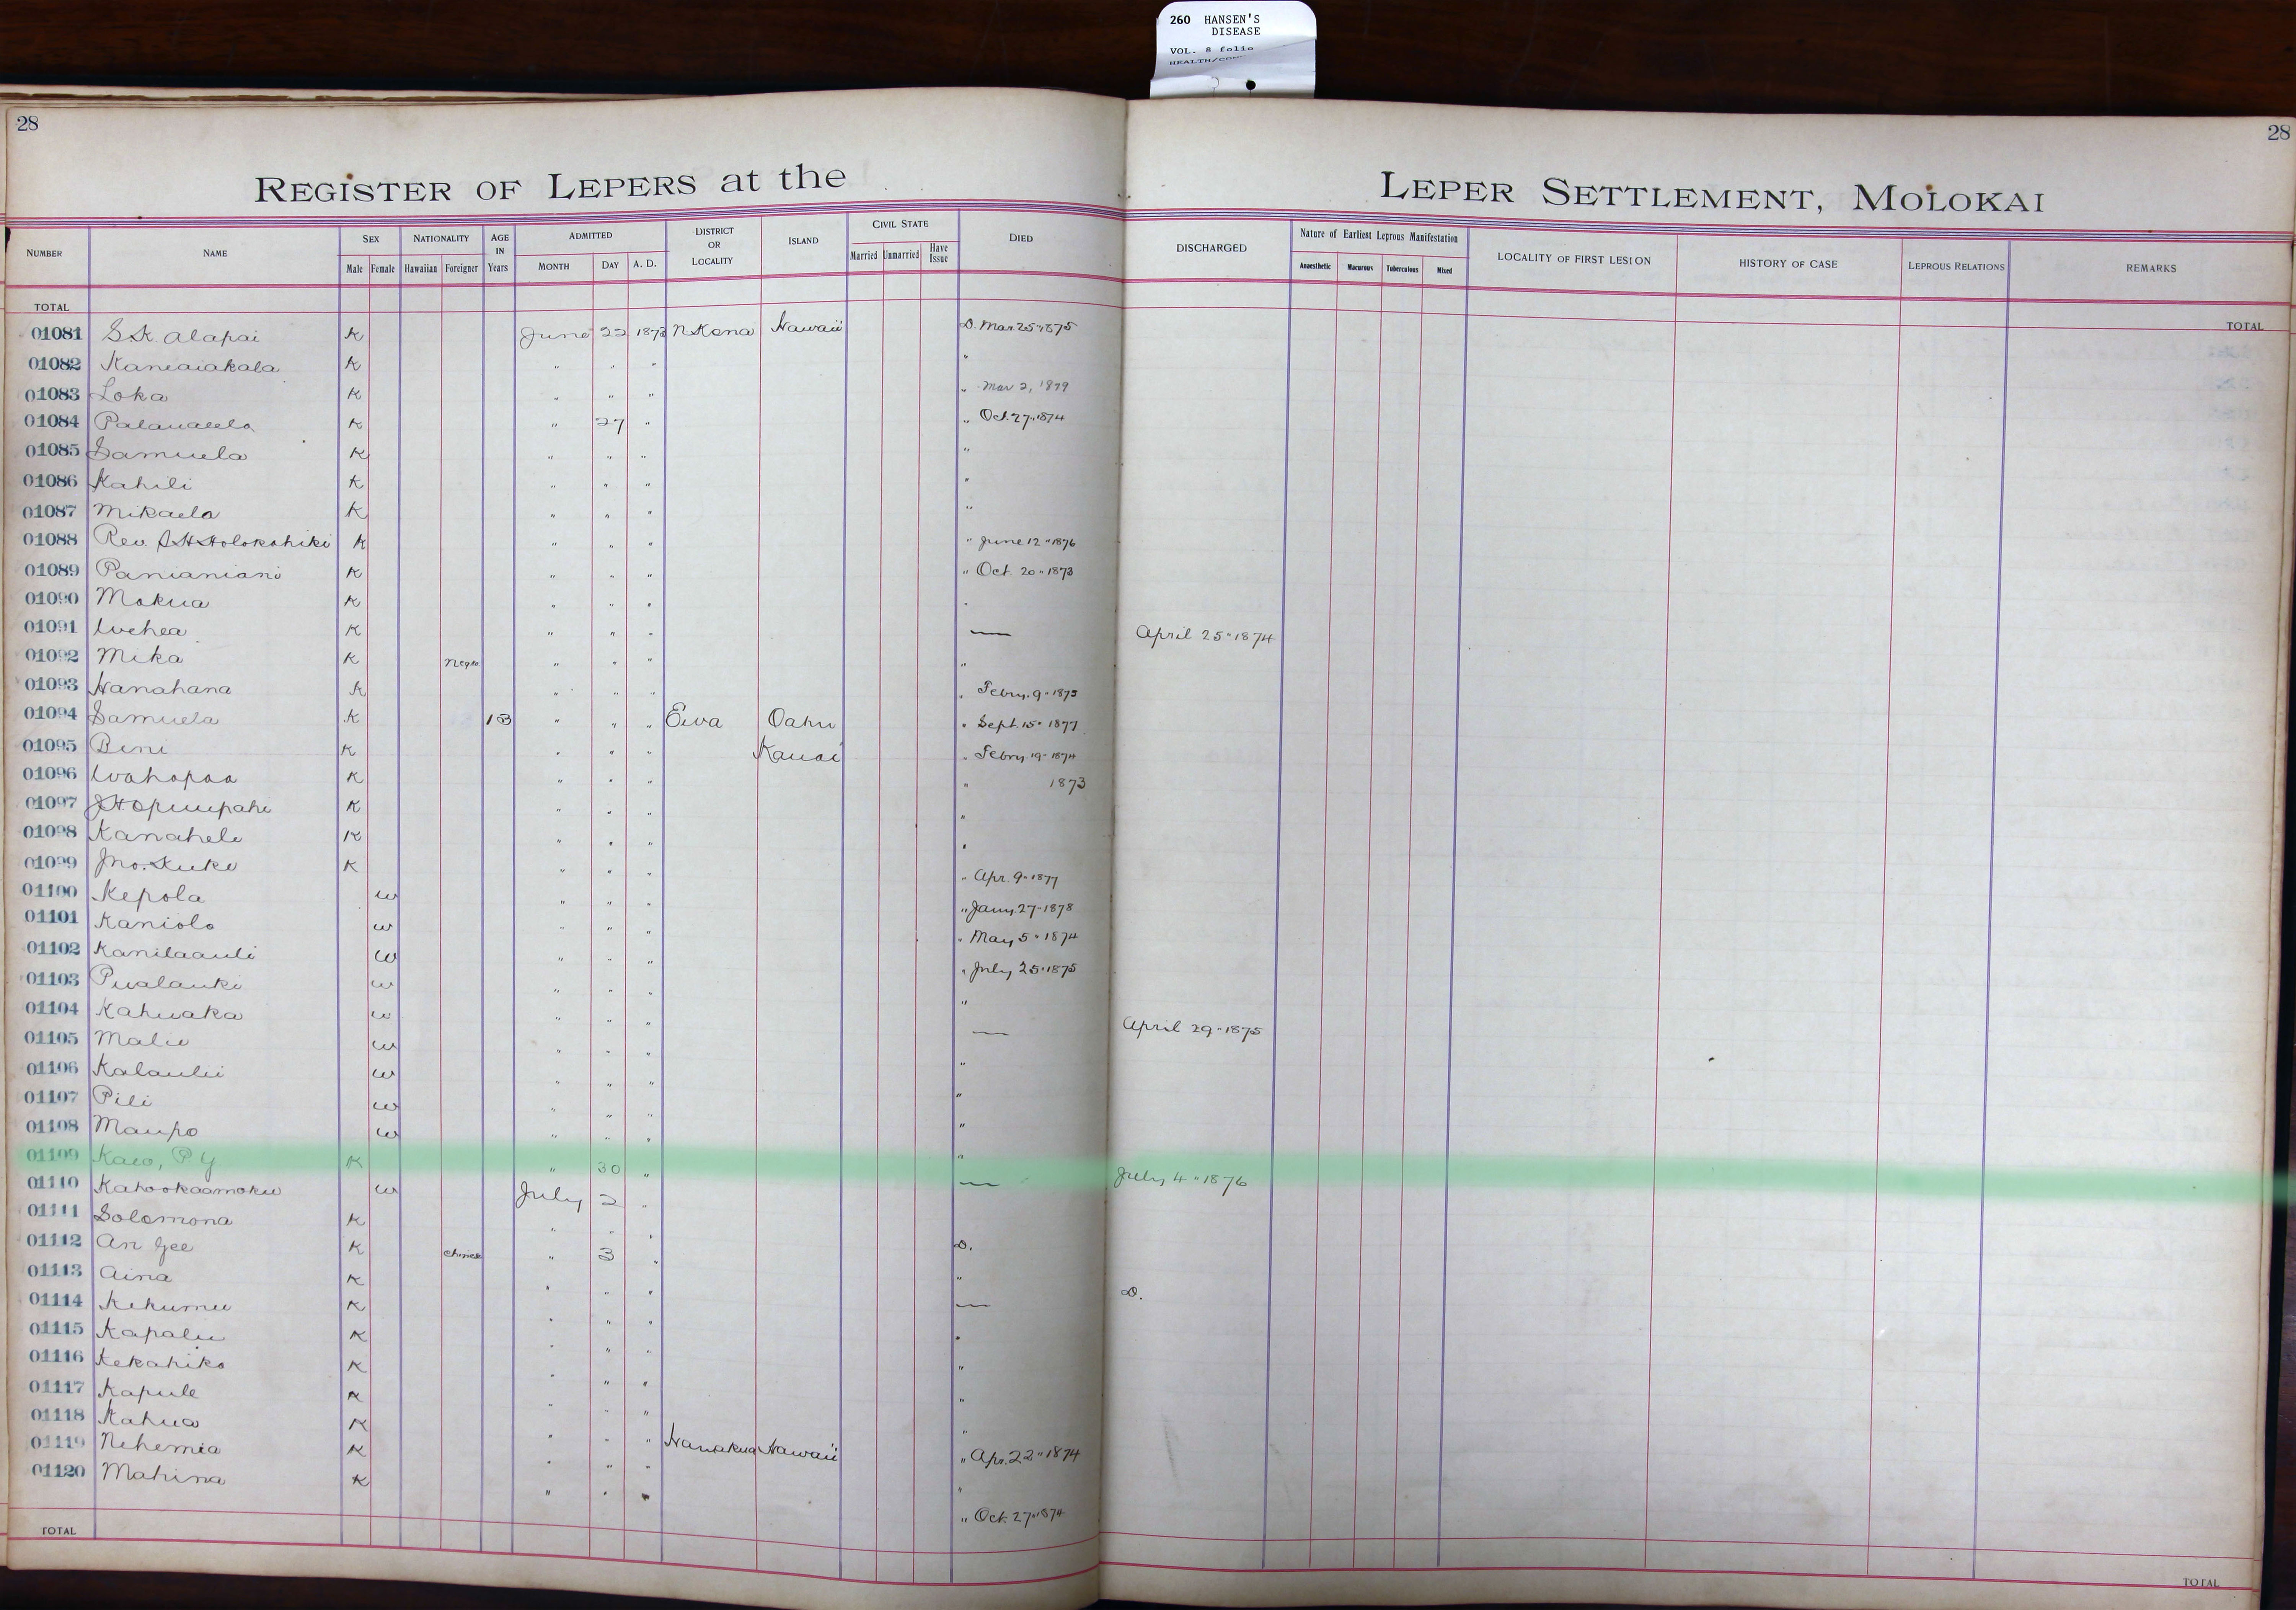 260 HANSEN'S
DISEASE
VOL. 8 folio
28
28
REGISTER OF LEPERS at the LEPER SETTLEMENT, MOLOKAI
NUMBER NAME SEX NATIONALITY AGE IN Years ADMITTED DISTRICT OR LOCALITY ISLAND CIVIL STATE DIED DISCHARGED Nature of Earliest Leprous Manifestation LOCALITY OF FIRST LESION HISTORY OF CASE LEPROUS RELATIONS REMARKS
Male Female Hawaiian Foreigner MONTH DAY A. D. Married Unmarried Have Issue Anaesthetic Tuberculous Mixed
TOTAL TOTAL
01081 S.K. Alapai K June 22 1873 N Kona Hawaii D. Mar. 25 " 1875
01082 Kaneaiakala K " " " "
01083 Loka K " " " " Mar 2, 1879
01084 K " 27 " " Oct. 27 " 1874
01085 Samuela K " " " "
01086 Kahili K " " " "
01087 Mikaela K " " " "
01088 Rev. S H Holokahiki K " " " " June 12 " 1876
01089 Panianiani K " " " " Oct. 20 " 1873
01090 Mokua K " " " "
01091 K " " " — April 25 " 1874
01092 Mika K Negro " " " "
01093 Hanahana K " " " " Febry. 9 "
01094 Samuela K 13 " " " Ewa Oahu " Sept. 15 " 1877
01095 Beni K " " " Kauai " Febry 19 " 1874
01096 Wahapaa K " " " " 1873
01097 K " " " "
01098 Kanahele K " " " "
01099 Jno. Kuke K " " " " Apr. 9 " 1877
01100 Kepola w " " " " Jany. 27 " 1878
01101 Kaniolo w " " " " May 5 " 1874
01102 Kanilaauli w " " " " July 25 " 1875
01103 Pualauki w " " " "
01104 Kahuaka w " " " — April 29 " 1875
01105 Malie w " " " "
01106 Kalaulii w " " " "
01107 Pili w " " " "
01108 Maupo w " " " "
01109 Kaeo, P Y K " 30 " "
01110 Kahookaamoku w July 2 " — July 4 " 1876
01111 Solomona K " " "
01112 An Gee K Chinese " 3 " D.
01113 Aina K " " " "
01114 Kekumu K " " " — D.
01115 Kapalu K " " " "
01116 Kekahiko K " " " "
01117 Kapule K " " " "
01118 Kahua K " " " "
01119 Nehemia K " " " Hamakua Hawaii " Apr. 22 " 1874
01120 Mahina K " " " "
" Oct. 27 " 1874
TOTAL TOTAL